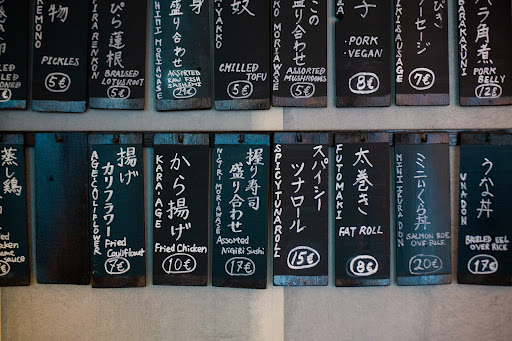 5€
EMONO
物
PICKLES
5€
RENKON
ぴら蓮根
BRAISED
LOTUS ROOT
5€
HIMI MORIAWASE
盛り合わせ
ASSORTED
RAW FISH
21€
奴
CHILLED TOFU
5€
KO MORIAWASE
のこ盛り合わせ
ASSORTED
MUSHROOMS
5€
子
PORK
VEGAN
8€
KISAUSAGE
びきソーセージ
7€
KAKUNI
ラ角煮
PORK
BELLY
12€
蒸し鶏
7€
AGECAULIFLOWER
揚げカリフラワー
Fried
Cauliflower
7€
KARA-AGE
から揚げ
Fried Chicken
10€
NIGIRI MORIAWASE
握り寿司
盛り合わせ
Assorted
Nigiri Sushi
17€
SPICY TUNAROLL
スパイシーツナロール
15€
FUTOMAKI
太巻き
FAT ROLL
8€
MINI IKURA DON
ミニいくら丼
SALMON ROE
OVER RICE
20€
UNADON
うな丼
BROILED EEL
OVER RICE
17€